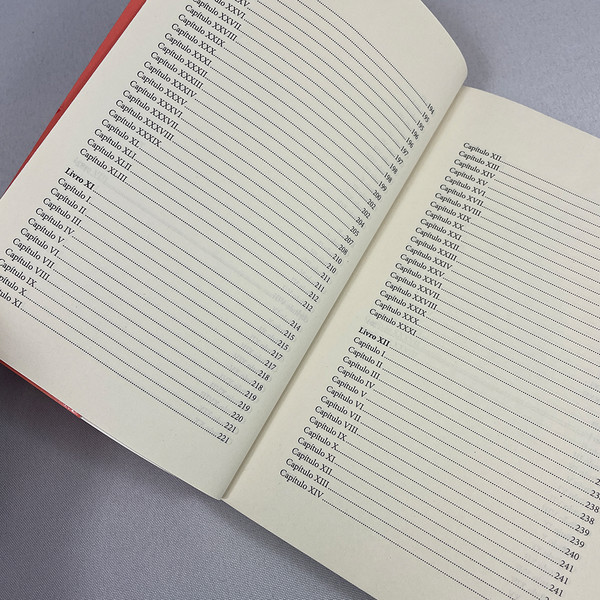 Capítulo XXVI
Capítulo XXVII
Capítulo XXVIII
Capítulo XXIX
Capítulo XXX
Capítulo XXXI
Capítulo XXXII
Capítulo XXXIII
Capítulo XXXIV
Capítulo XXXV
Capítulo XXXVI
Capítulo XXXVII
Capítulo XXXVIII
Capítulo XXXIX
Capítulo XL
Capítulo XLI
Capítulo XLII
Capítulo XLIII
Livro XI
Capítulo I
Capítulo II
Capítulo III
Capítulo IV
Capítulo V
Capítulo VI
Capítulo VII
Capítulo VIII
Capítulo IX
Capítulo X
Capítulo XI
194
195
195
196
197
197
198
198
199
200
202
202
204
205
207
208
210
210
211
211
212
212
214
215
215
217
217
218
218
219
219
220
221
221
Capítulo XII
Capítulo XIII
Capítulo XIV
Capítulo XV
Capítulo XVI
Capítulo XVII
Capítulo XVIII
Capítulo XIX
Capítulo XX
Capítulo XXI
Capítulo XXII
Capítulo XXIII
Capítulo XXIV
Capítulo XXV
Capítulo XXVI
Capítulo XXVII
Capítulo XXVIII
Capítulo XXIX
Capítulo XXX
Capítulo XXXI
Livro XII
Capítulo I
Capítulo II
Capítulo III
Capítulo IV
Capítulo V
Capítulo VI
Capítulo VII
Capítulo VIII
Capítulo IX
Capítulo X
Capítulo XI
Capítulo XII
Capítulo XIII
Capítulo XIV
238
238
239
239
240
241
241